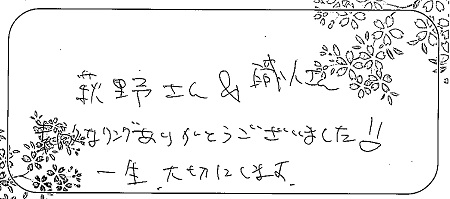 荻野さん&職人さん
なリングありがとうございました!!
一生、大切にします。